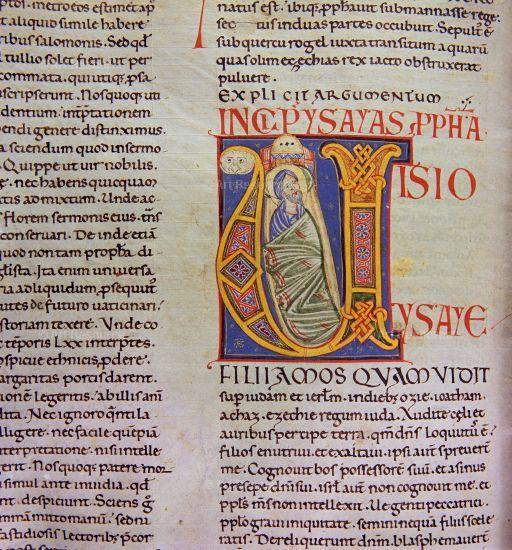 ptoi. metroeos estimet ap
t aliquid simile habere
ribus salomonis. Sed qđ
tullio solet fieri. ut per
commata. qui utiq; psa
scripserunt. Nos quoq; uti
dentium. intp̄tationem
endi genere distinximus.
a sciendum quod in sermo
Quippe ut uir nobilis.
nec habens quicquam
tis admixtum. Unde ac
florem sermonis eius. tn̄s
conseruari. De inde etiā
quod non tam prophā di
glista. Ita enim uniuersa
ria ad liquidum. psequut
utes de futuro uaticinari
storiam texere. Unde co
tēporis Lxx interptes.
ospicue ethnicis. pdere.
argaritas porcis darent.
onē legeritis. ab illis ani
dita. Nec ignoro qnti la
lligere. nec facile quēpiā
nterpretatione. nisi intelle
gerit. Nos quoq; patere mor
simul ante inuidia. qđ
nt. despiciunt. Sciens g̊
mm mittomanū. sed ni
fastidiosis lectorib; pcor
natus est. ibiq; pphauit submannasse rege.
sec tus induas partes occubuit. Sepult̄ ē
sub quercu rogel. iuxta transitum aquarū
quas olim ezechias rex iacto obstruxerat
puluere.
EXPLICIT ARGUMENTUM
INCP YSAYAS PPHA
VISIO
YSAYE
FILII AMOS QVAM VIDIT
sup iudam et ierl̄m. indieb; ozie. ioatham.
achaz. ezechie regum iuda. Audite cęli et
auribus percipe terra. qm̄ dn̄s loquut̄ ē
filios enutriui. et exaltaui. ipsi aut̄ spreuer̄
me. Cognouit bos possessorē suū. et asinus
presepe dn̄i sui. isrl aut̄ non cognouit me. et
ppl̄s m̄s non intellexit. Ue genti peccatrici.
pplo graui iniquitate. semini nequā. filiis scele
ratis. Dereliquerunt dn̄m. blasphemauer̄